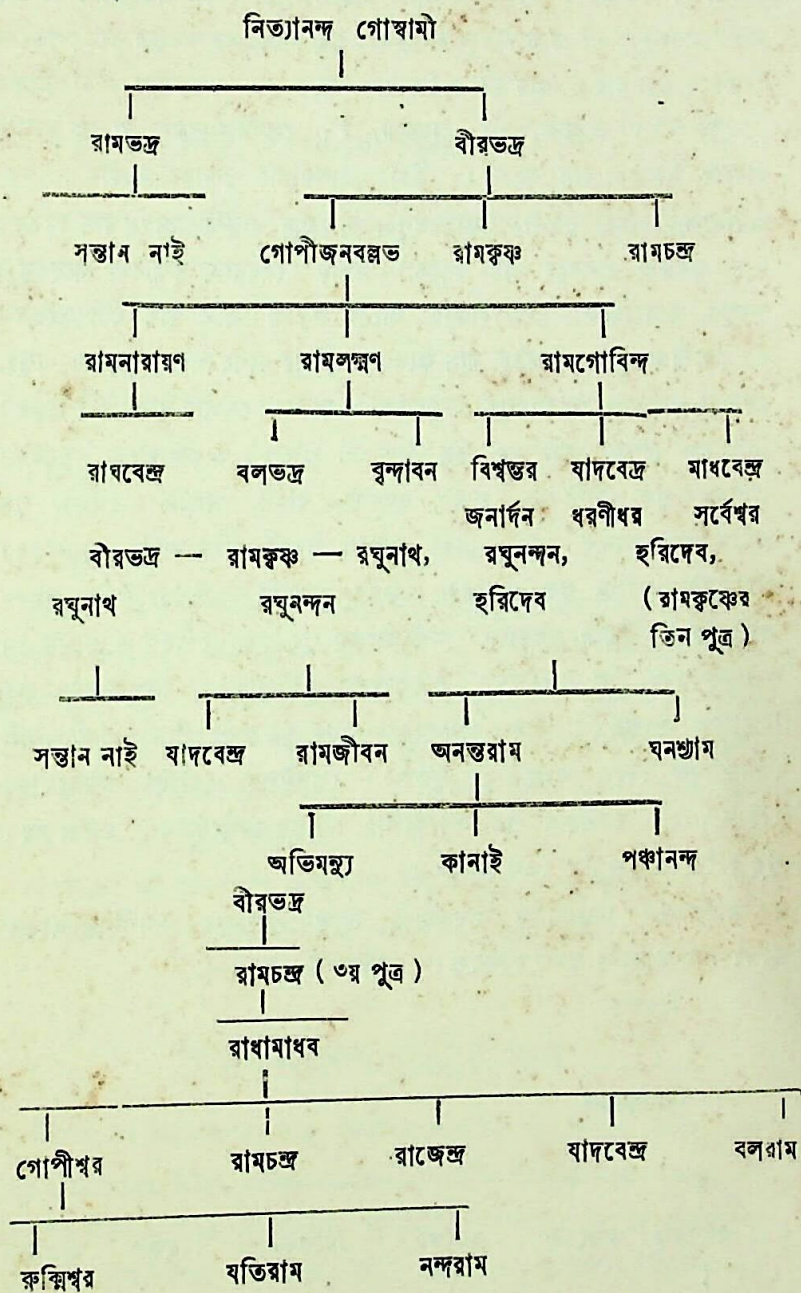 নিত্যানন্দ গোস্বামী
রামভদ্র বীরভদ্র
সন্তান নাই গোপীজনবল্লভ রামকৃষ্ণ রামচন্দ্র
রামনারায়ণ রামলক্ষ্মণ রামগোবিন্দ
রাঘবেন্দ্র বলভদ্র বৃন্দাবন বিশ্বম্ভর যাদবেন্দ্র মাধবেন্দ্র
জনার্দন ধরণীধর সর্বেশ্বর
বীরভদ্র — রামকৃষ্ণ — রঘুনাথ, রঘুনন্দন, হরিদেব,
রঘুনাথ রঘুনন্দন হরিদেব (রামকৃষ্ণের
তিন পুত্র)
সন্তান নাই যাদবেন্দ্র রামজীবন অনন্তরাম ঘনশ্যাম
অভিমন্যু কানাই পঞ্চানন্দ
বীরভদ্র
রামচন্দ্র (৩য় পুত্র)
রাধামাধব
গোপীশ্বর রামচন্দ্র রাজেন্দ্র যাদবেন্দ্র বলরাম
রুক্মিশ্বর যতিরাম নন্দরাম